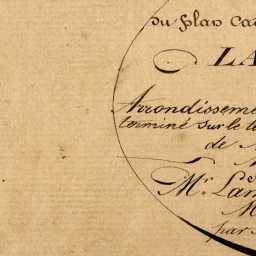 du plan
LA
Arrondisseme
terminé sur le te
de
Mr. Lam
M
par